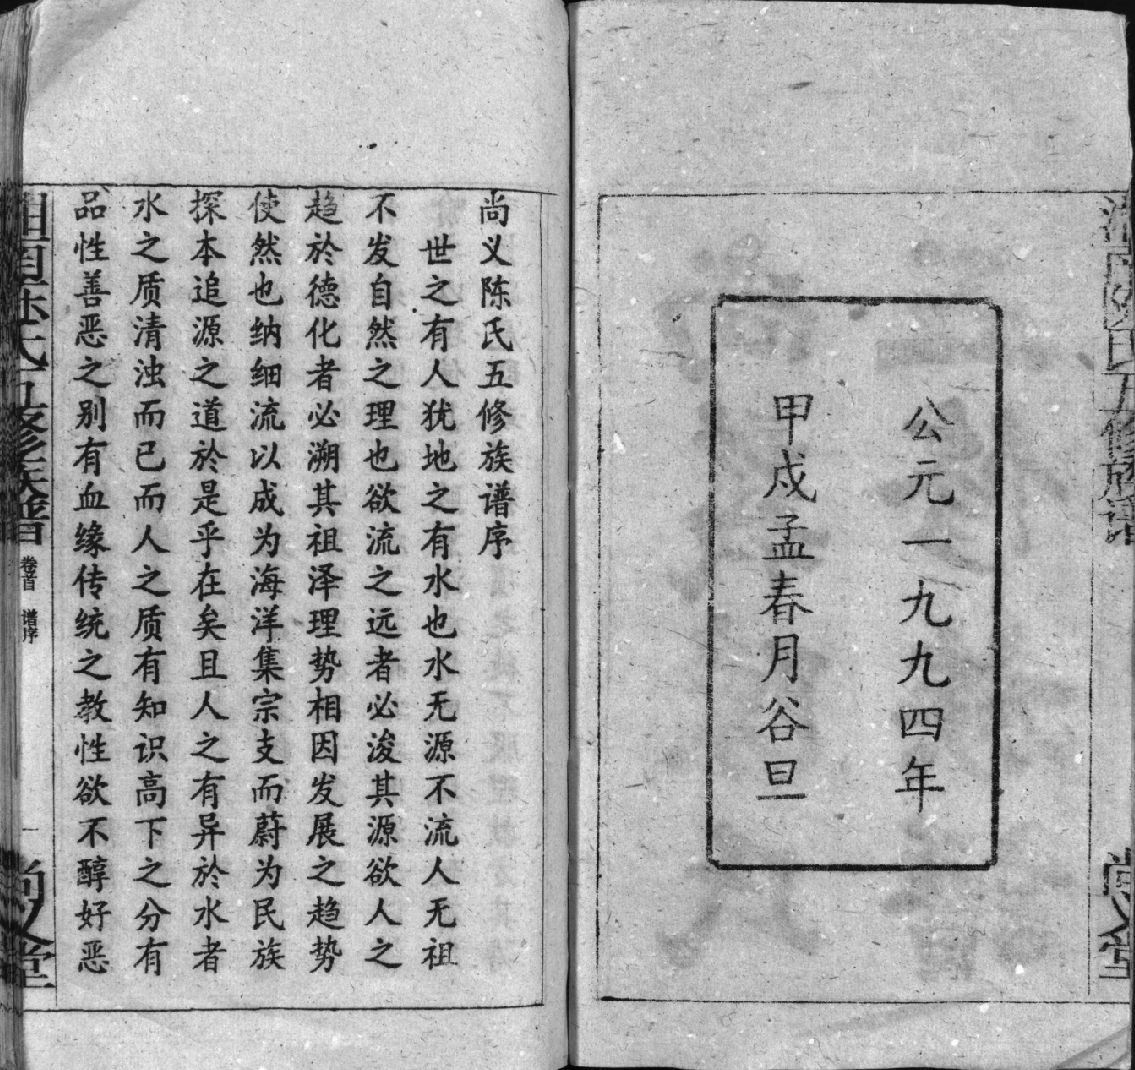 公元一九九四年
甲戌孟春月谷旦
尚义堂
尚义陈氏五修族谱序
世之有人犹地之有水也水无源不流人无祖
不发自然之理也欲流之远者必浚其源欲人之
趋於德化者必溯其祖泽理势相因发展之趋势
使然也纳细流以成为海洋集宗支而蔚为民族
探本追源之道於是乎在矣且人之有异於水者
水之质清浊而已而人之质有知识高下之分有
品性善恶之别有血缘传统之教性欲不醇好恶
氏五修族谱
卷首 谱序
一
尚义堂